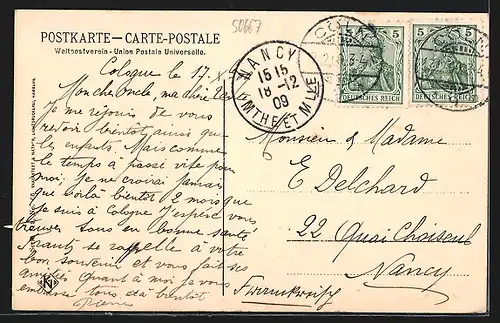 POSTKARTE — CARTE-POSTALE
Weltpostverein - Union Postale Universelle.
50667
Cologne le 17. X
Mon cher Oncle, ma chère Tante
Je me réjouis de vous
revoir bientôt ainsi que
les enfants. Mais comme
le temps a passé vite pour
moi. Je ne croirai jamais
que voilà bientôt 2 mois que
je suis à Cologne J'espère vous
trouver tous en bonne santé
se rappelle à votre
bon souvenir et vous fait ses
amitiés Quant à moi je vous
embrasse tous et à bientôt
Pierre
NANCY
15 15
18 -12
09
MTHE ET MLLE
CÖLN
5 5
DEUTSCHES REICH
Monsieur & Madame
E Delchard
22 Quai Choiseul
Nancy
Frankreich